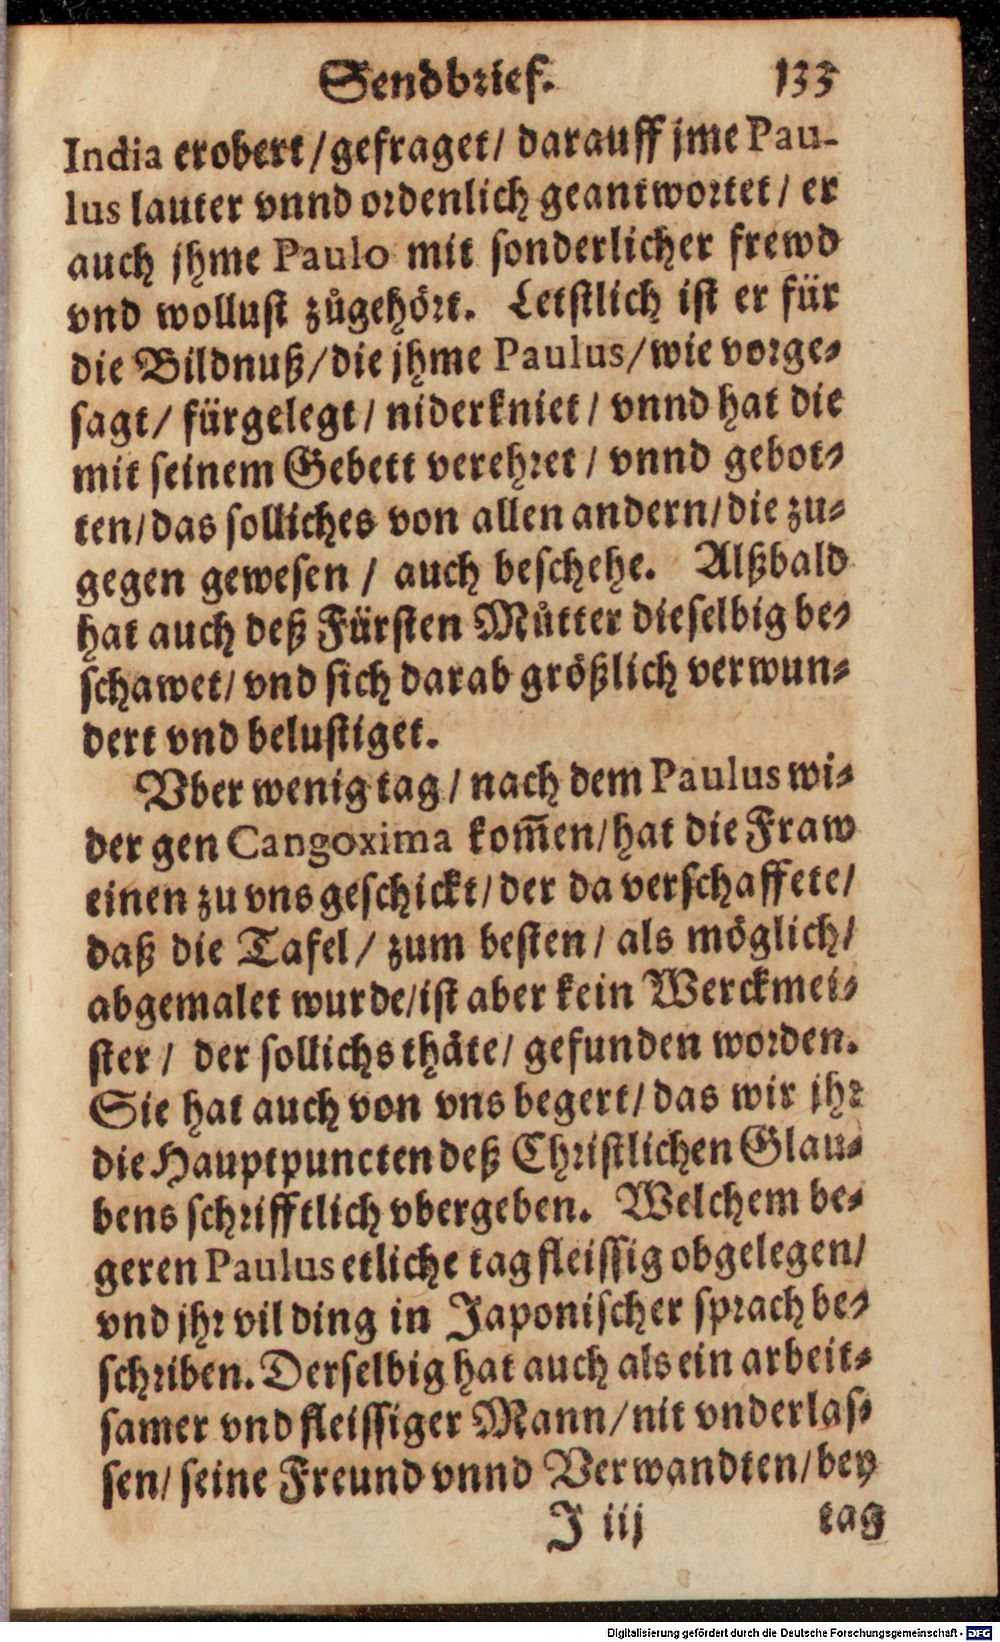 Sendbrief. 133
India erobert/gefraget/ darauff jme Pau-
lus lauter vnnd ordenlich geantwortet/ er
auch jhme Paulo mit sonderlicher frewd
vnd wollust zůgehört. Letstlich ist er für
die Bildnuß/die jhme Paulus/wie vorge-
sagt/ fürgelegt/ niderkniet/ vnnd hat die
mit seinem Gebett verehret/ vnnd gebot-
ten/das solliches von allen andern/die zu-
gegen gewesen/ auch beschehe. Alßbald
hat auch deß Fürsten Můtter dieselbig be-
schawet/ vnd sich darab größlich verwun-
dert vnd belustiget.
Vber wenig tag/ nach dem Paulus wi-
der gen Cangoxima kom̄en/hat die Fraw
einen zu vns geschickt/der da verschaffete/
daß die Tafel/ zum besten/ als möglich/
abgemalet wurde/ist aber kein Werckmei-
ster/ der sollichs thäte/ gefunden worden.
Sie hat auch von vns begert/das wir jhr
die Hauptpuncten deß Christlichen Glau-
bens schrifftlich vbergeben. Welchem be-
geren Paulus etliche tag fleissig obgelegen/
vnd jhr vil ding in Japonischer sprach be-
schriben. Derselbig hat auch als ein arbeit-
samer vnd fleissiger Mann/nit vnderlas-
sen/ seine Freund vnnd Verwandten/bey
J iij tag
Digitalisierung gefördert durch die Deutsche Forschungsgemeinschaft - DFG